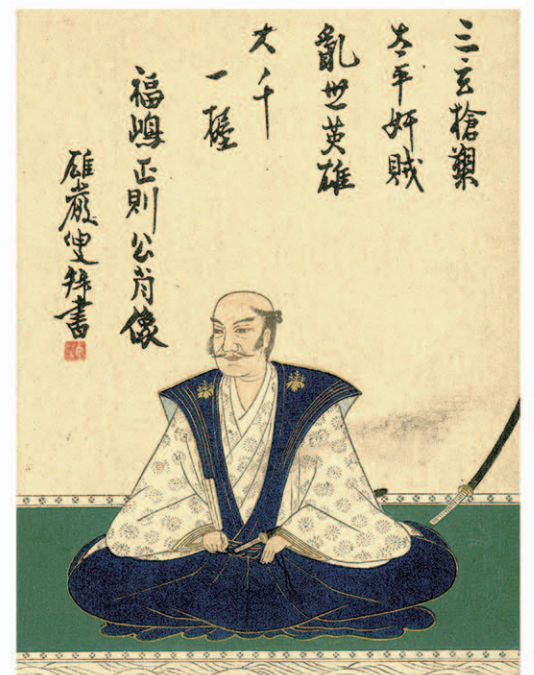 三玄槍槊
太平奸賊
亂世英雄
大千
一握
福嶋正則公肖像
雄巖叟拜書